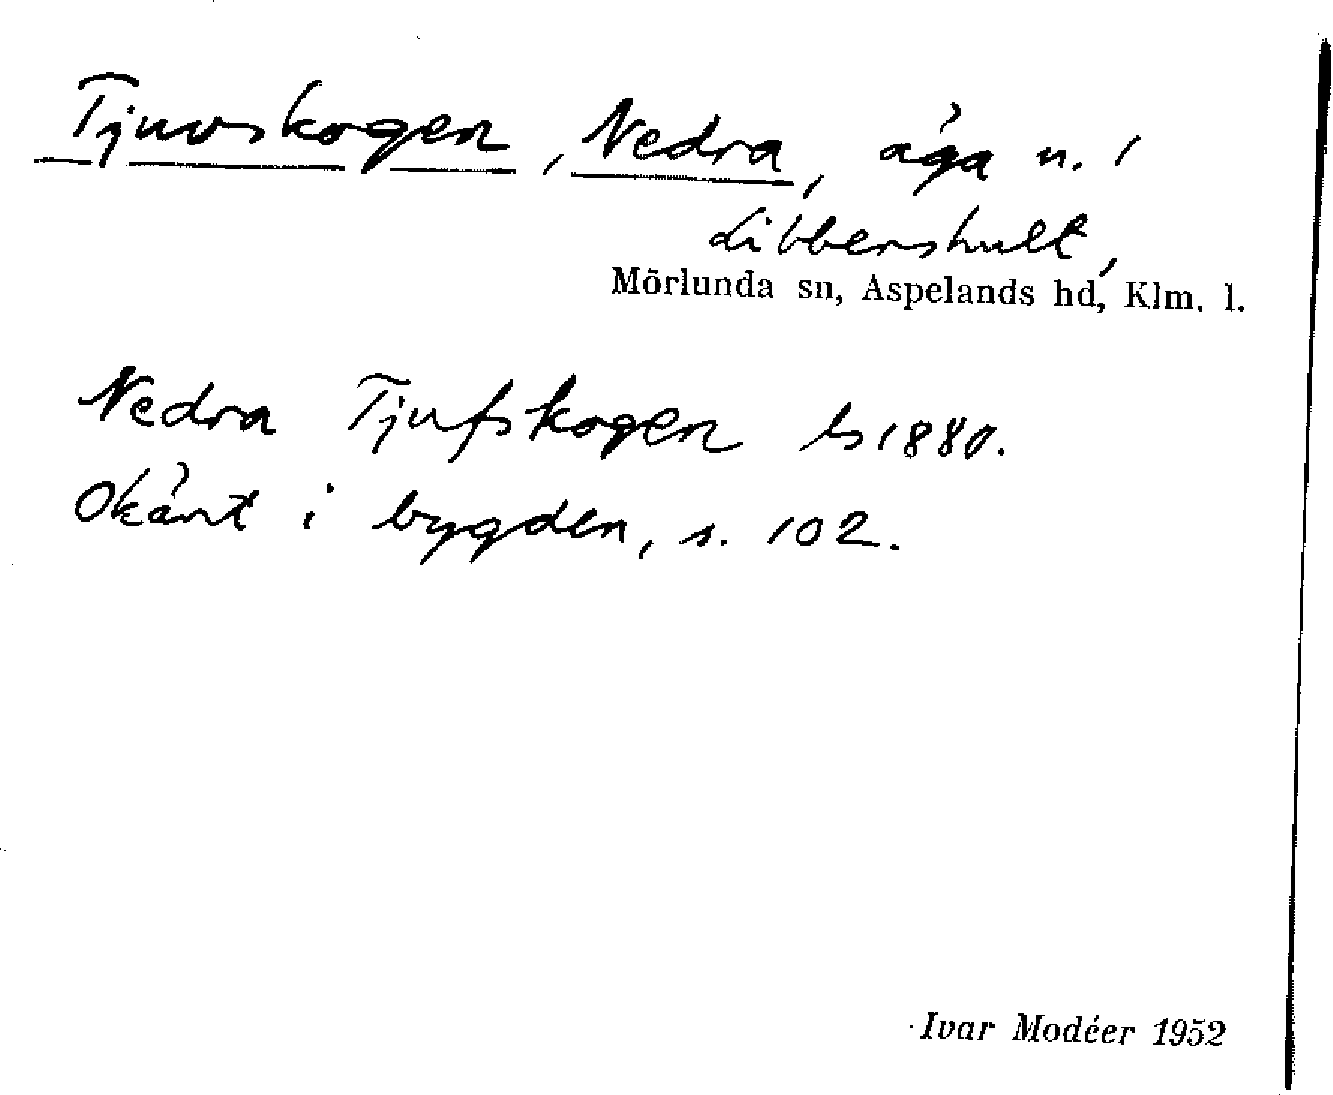 Tjuvskogen, Nedra, äga n. i
Libbershult,
Mörlunda sn, Aspelands hd, Klm. l.
Nedra Tjufskogen ls 1880.
Okänt i bygden, s. 102.
Ivar Modéer 1952